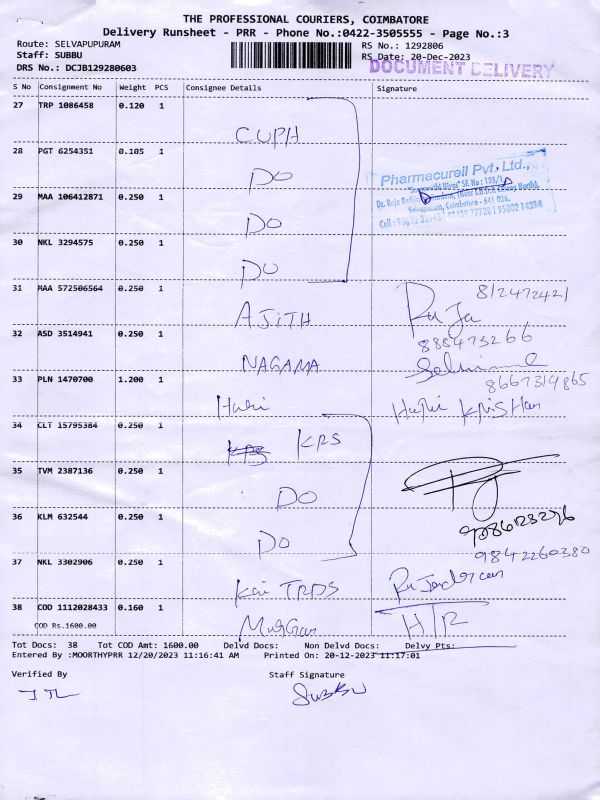 THE PROFESSIONAL COURIERS, COIMBATORE
Delivery Runsheet - PRR - Phone No.:0422-3505555 - Page No.:3
Route: SELVAPUPURAM
RS No.: 1292806
Staff: SUBBU
RS Date: 20-Dec-2023
DRS No.: DCJB129280603
DOCUMENT DELIVERY
S No Consignment No Weight PCS Consignee Details Signature
27 TRP 1086458 0.120 1
CUPH
28 PGT 6254351 0.105 1
DO
Pharmacureil Pvt. Ltd.,
29 MAA 106412871 0.250 1
DO
Selvapuram, Coimbatore - 641 026.
30 NKL 3294575 0.250 1
DO
31 MAA 572506564 0.250 1
AJITH
Raja
812472421
32 ASD 3514941 0.250 1
885473266
NAGAMA
33 PLN 1470700 1.200 1
8667319865
Hari
Hari Krishan
34 CLT 15795384 0.250 1
KPS KPS
35 TVM 2387136 0.250 1
DO
36 KLM 632544 0.250 1
DO
37 NKL 3302906 0.250 1
9842260380
Kai TRDS
38 COD 1112028433 0.160 1
COD Rs.1600.00
Murgan
H/R
Tot Docs: 38 Tot COD Amt: 1600.00 Delvd Docs: Non Delvd Docs: Delvy Pts:
Entered By :MOORTHYPRR 12/20/2023 11:16:41 AM Printed On: 20-12-2023 11:17:01
Verified By
Staff Signature
SUBBU